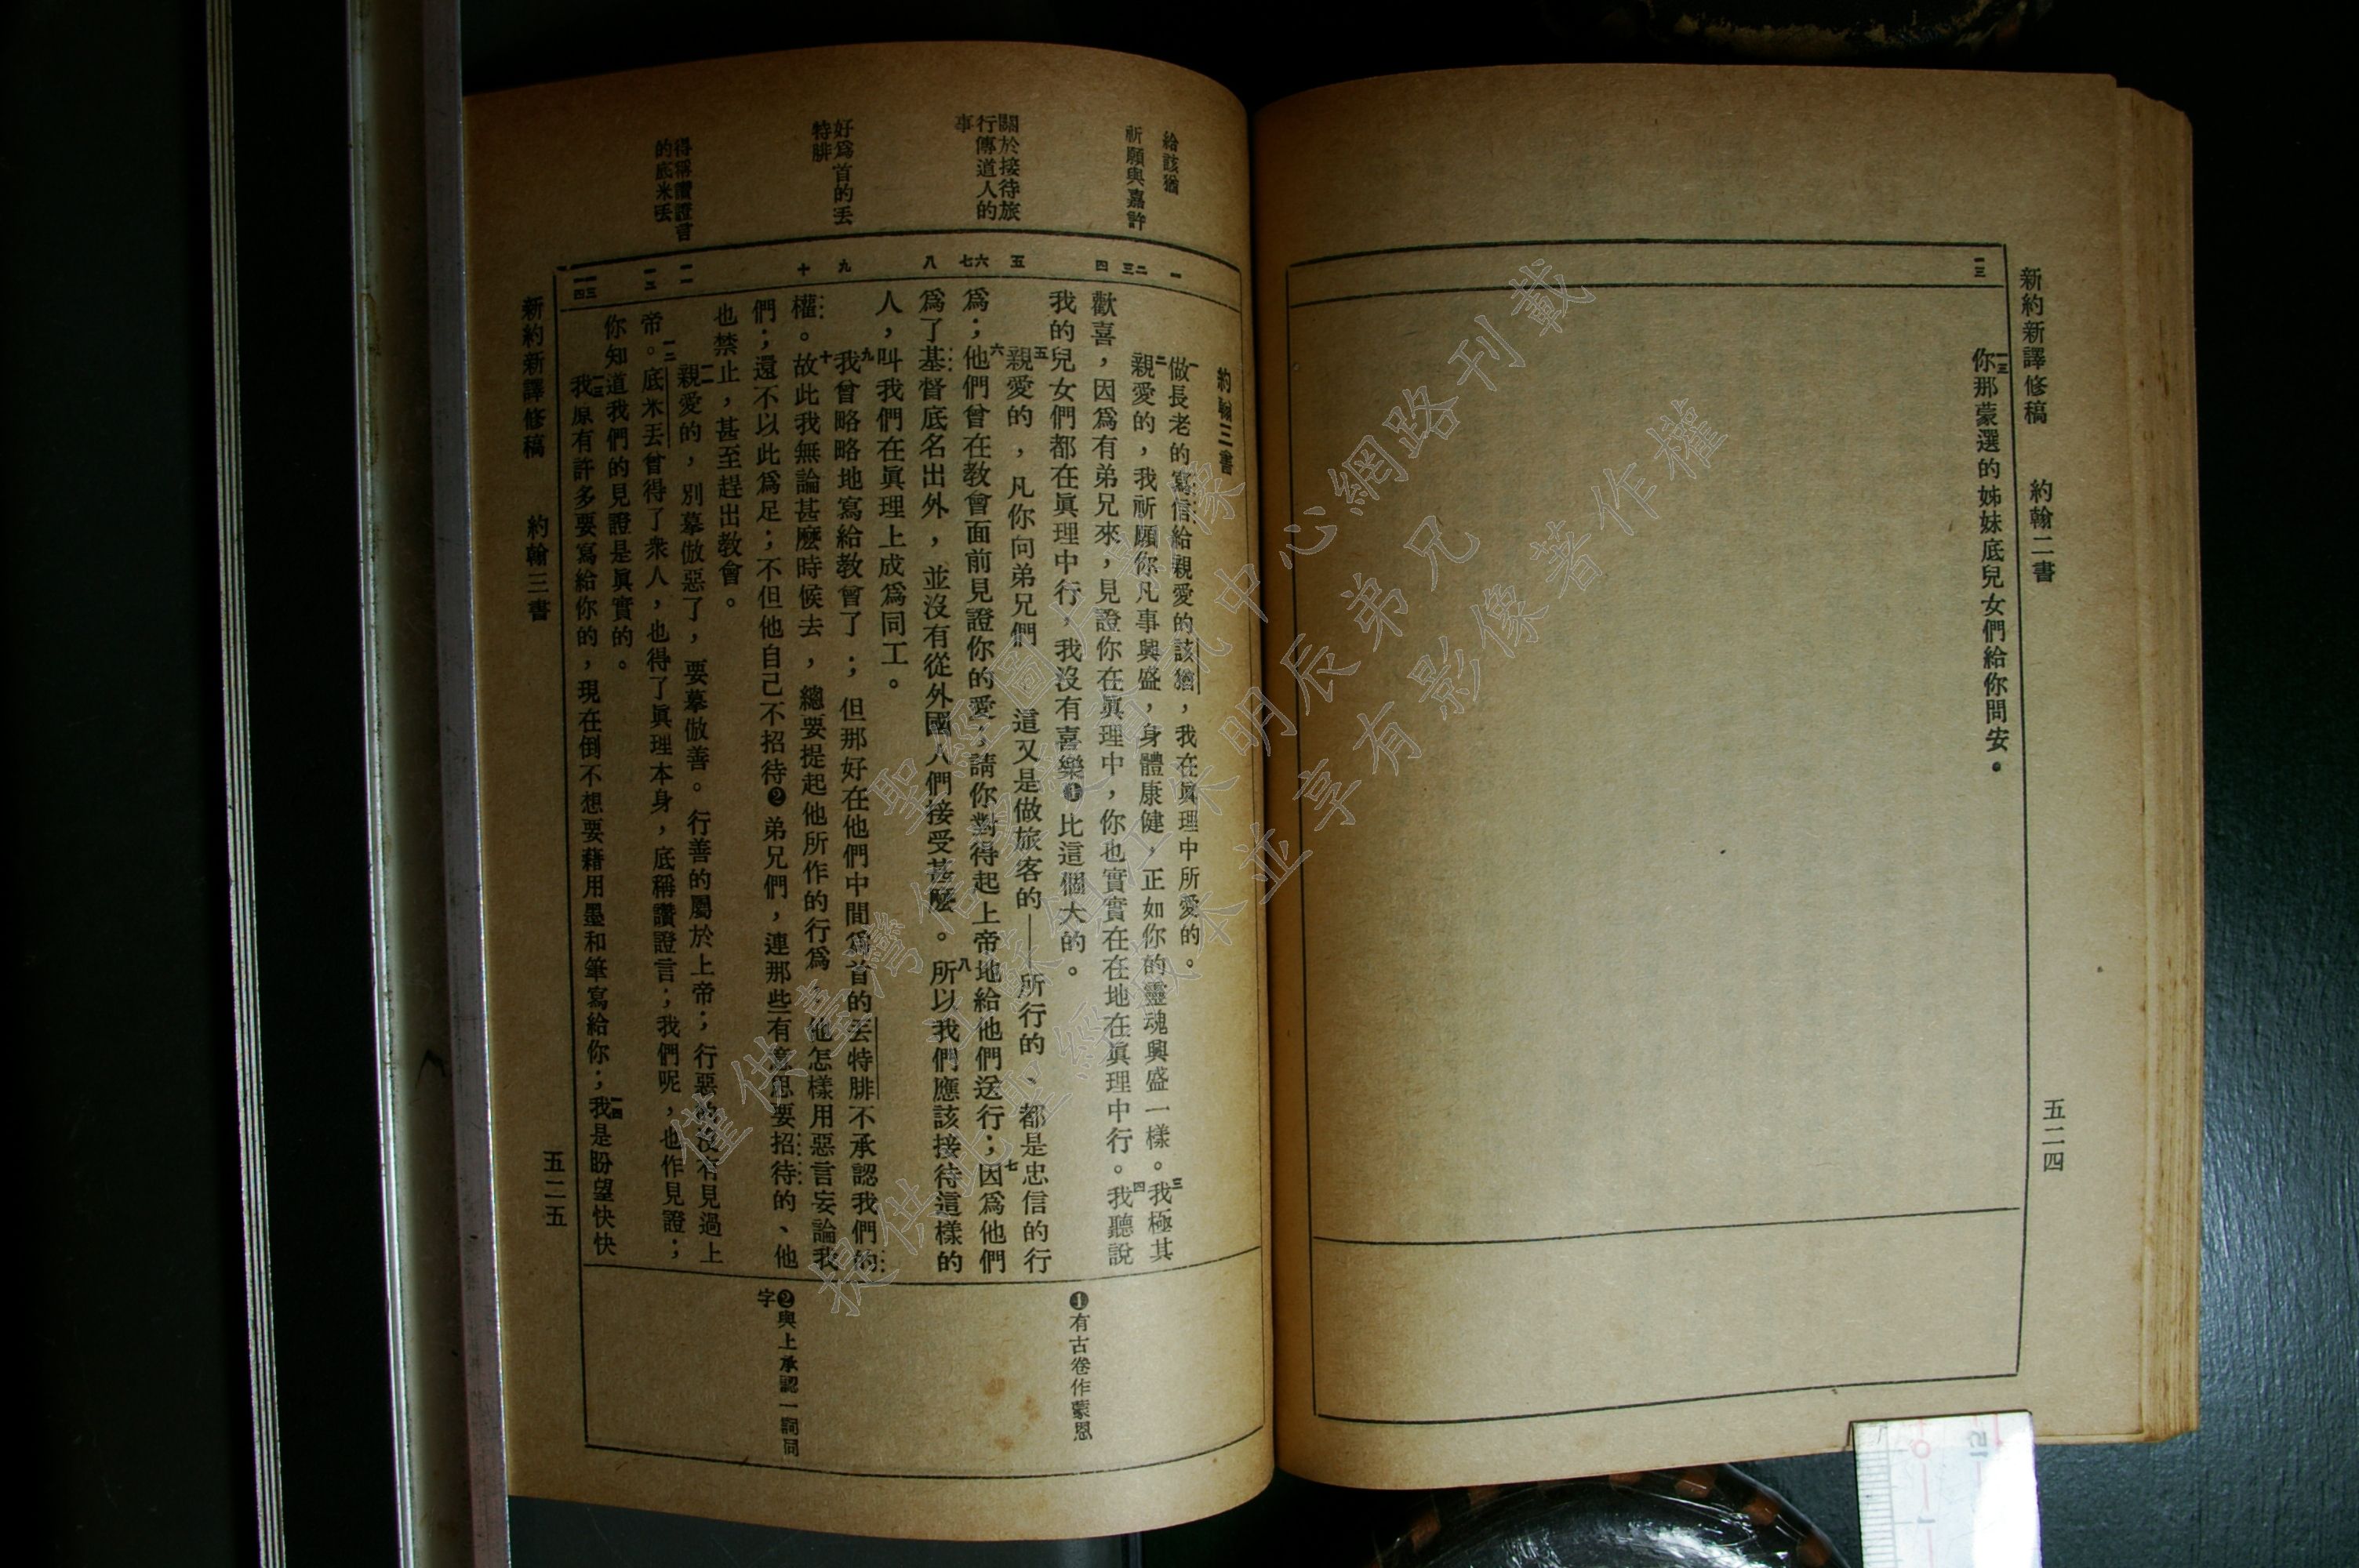 新約新譯修稿　約翰二書　五二四
一三
一三你那蒙選的姊妹底兒女們給你問安。
給該猶
祈願與嘉許
關於接待旅
行傳道人的
事
好爲首的丟
特腓
得稱讚證言
的底米丟
一
二
三
四
五
六
七
八
九
十
一一
一二
一三
一四
約翰三書
一做長老的寫信給親愛的該猶，我在眞理中所愛的。
二親愛的，我祈願你凡事興盛，身體康健，正如你的靈魂興盛一樣。三我極其
歡喜，因爲有弟兄來，見證你在眞理中，你也實實在在地在眞理中行。四我聽說
我的兒女們都在眞理中行，我沒有喜樂❶比這個大的。
五親愛的，凡你向弟兄們——這又是做旅客的——所行的、都是忠信的行
爲；六他們曾在教會面前見證你的愛；請你對得起上帝地給他們送行；七因爲他們
爲了基督底名出外，並沒有從外國人們接受甚麽。八所以我們應該接待這樣的
人，叫我們在眞理上成爲同工。
九我曾略略地寫給教會了；但那好在他們中間爲首的丟特腓不承認我們的
權。十故此我無論甚麽時候去，總要提起他所作的行爲，他怎樣用惡言妄論我
們；還不以此爲足；不但他自己不招待❷弟兄們，連那些有意思要招待的、他
也禁止，甚至趕出教會。
一一親愛的，別摹倣惡了，要摹倣善。行善的屬於上帝；行惡的沒有見過上
帝。一二底米丟曾得了衆人，也得了眞理本身，底稱讚證言；我們呢，也作見證；
你知道我們的見證是眞實的。
一三我原有許多要寫給你的，現在倒不想要藉用墨和筆寫給你；一四我是盼望快快
❶有古卷作蒙恩
❷與上承認一詞同
字
新約新譯修稿　約翰三書　五二五
僅供臺灣信望愛
提供